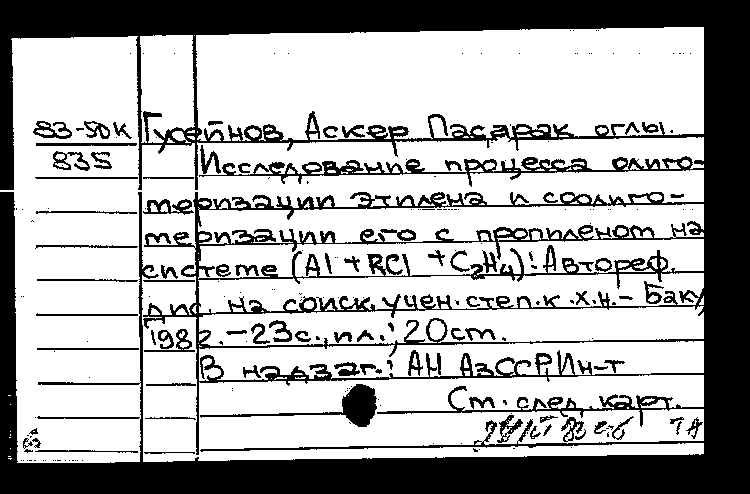 83-50К Гусейнов, Аскер Пасарак оглы.
835 Исследование процесса олиго-
меризации этилена и соолиго-
меризации его с пропиленом на
системе (Al + RCl + C₂H₄): Автореф.
дис. на соиск. учен. степ. к.х.н. - Баку,
1982. - 23с., ил.; 20см.
В надзаг.: АН АзССР, Ин-т
См. след. карт.